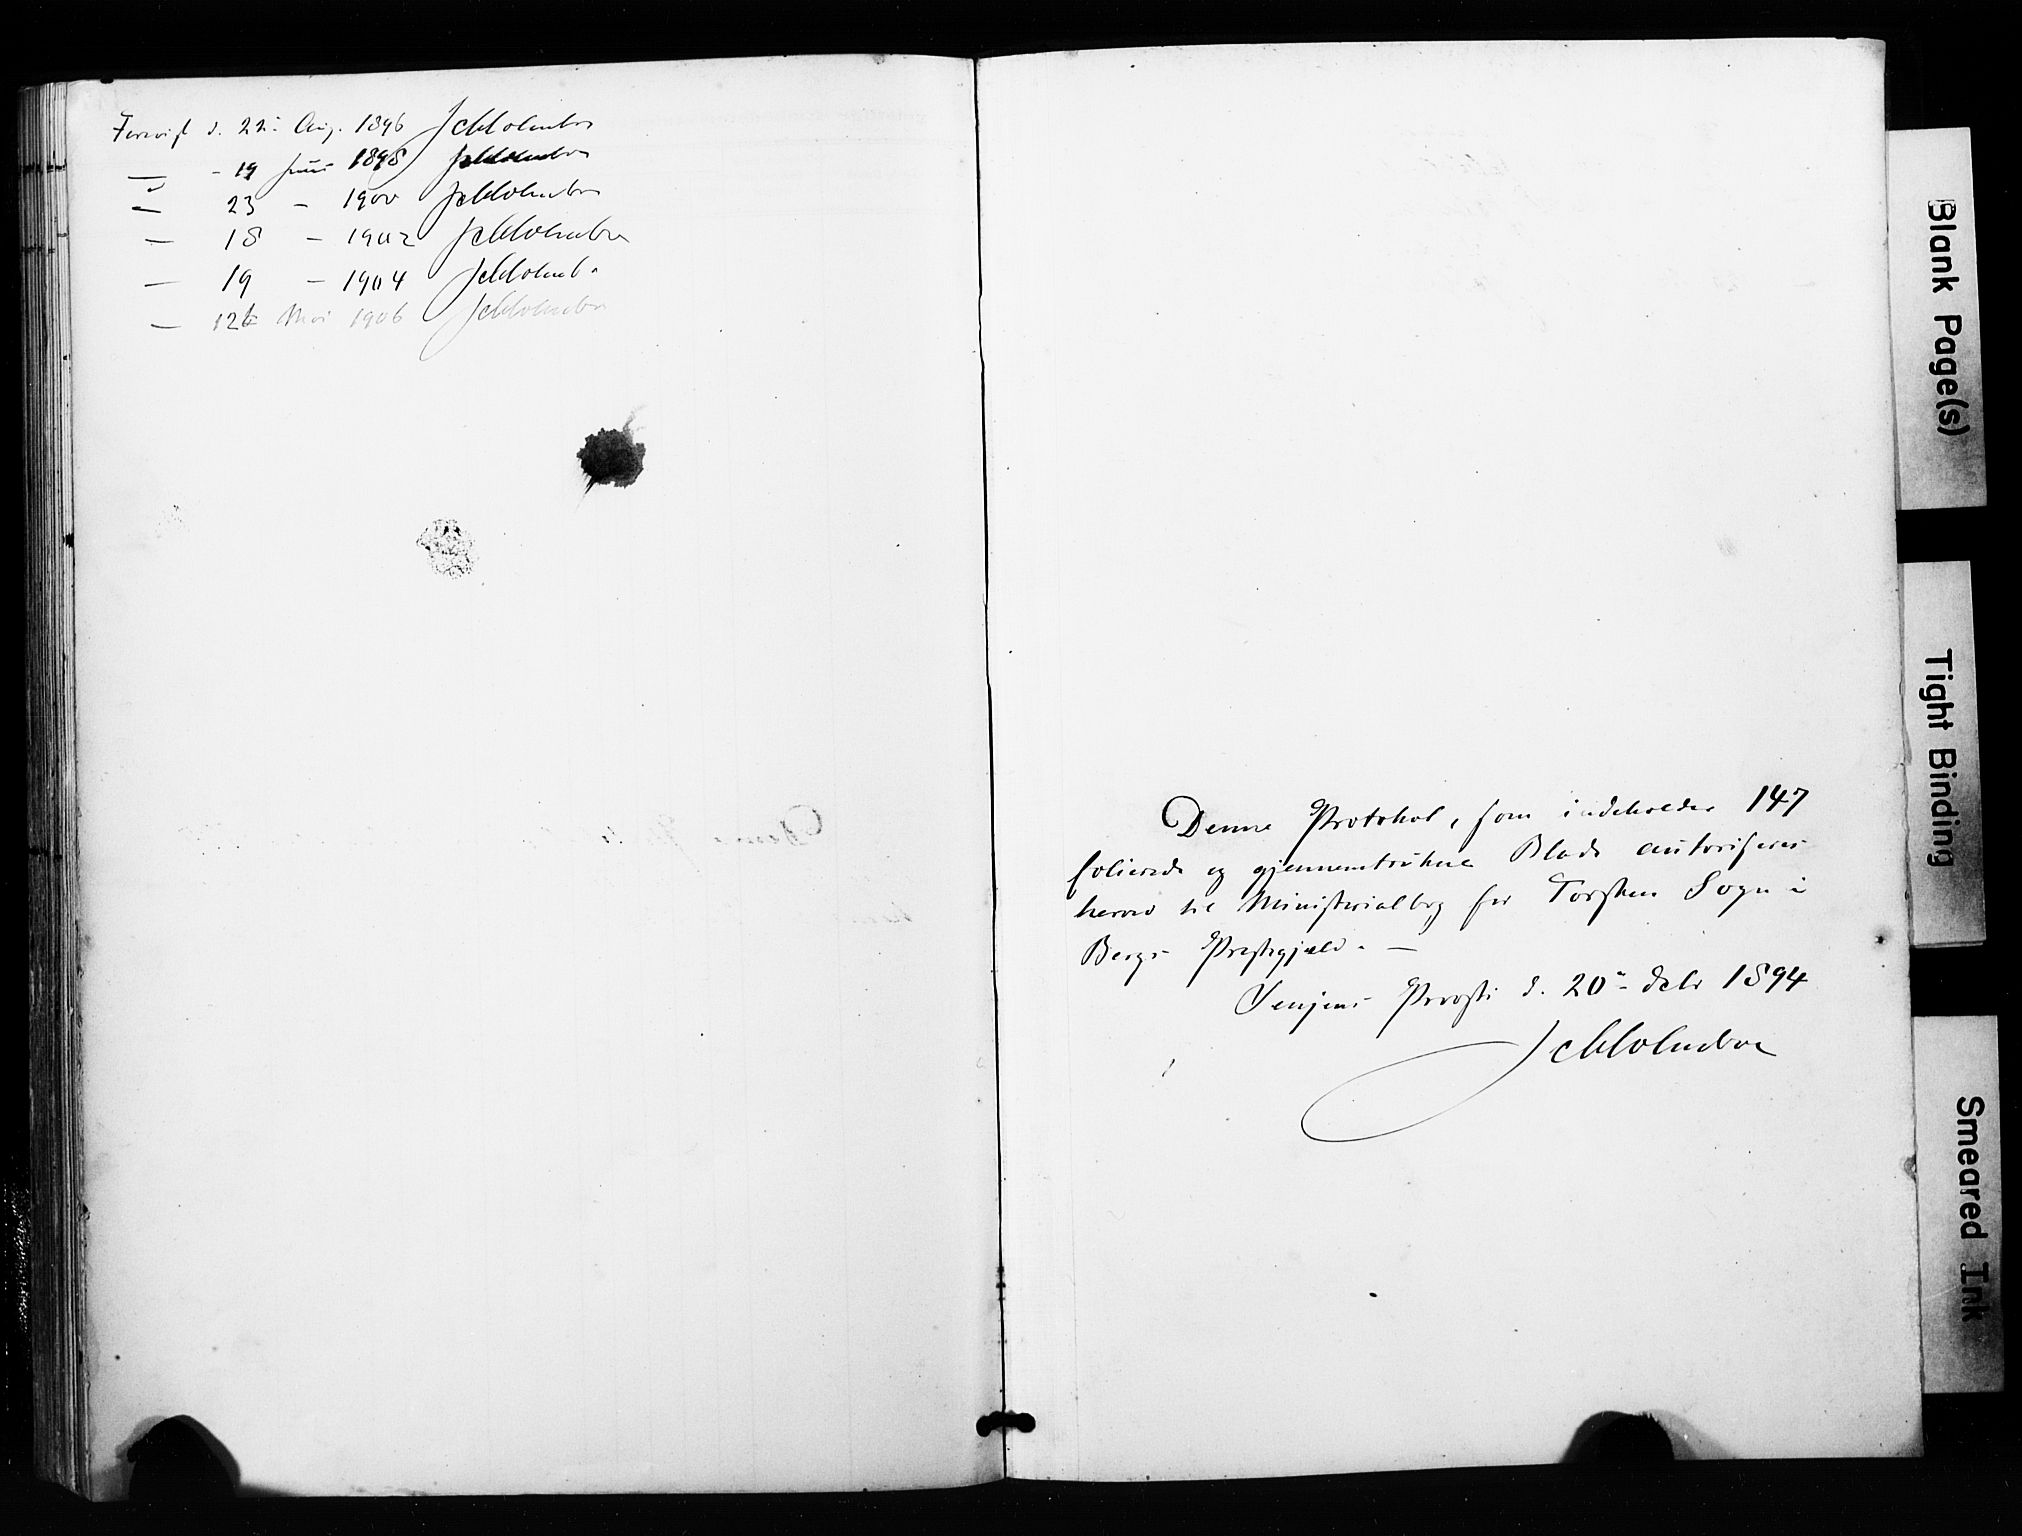 Forevist d. 22de Aug. 1896 JCHolmboe
— - 19 Juni 1898 JCHolmboe
— 23 - 1900 JCHolmboe
— 18 - 1902 JCHolmboe
— 19 - 1904 JCHolmboe
— 12te Mai 1906 JCHolmboe
Denne Protokol, som indeholder 147
folierede og gjennemtrukne Blade autoriseres
herved til Ministerialbog for Torsken Sogn i
Bergs Prestegjæld. —
Senjens Provsti d. 20de Debr 1894
JCHolmboe
Blank Page(s)
Tight Binding
Smeared Ink